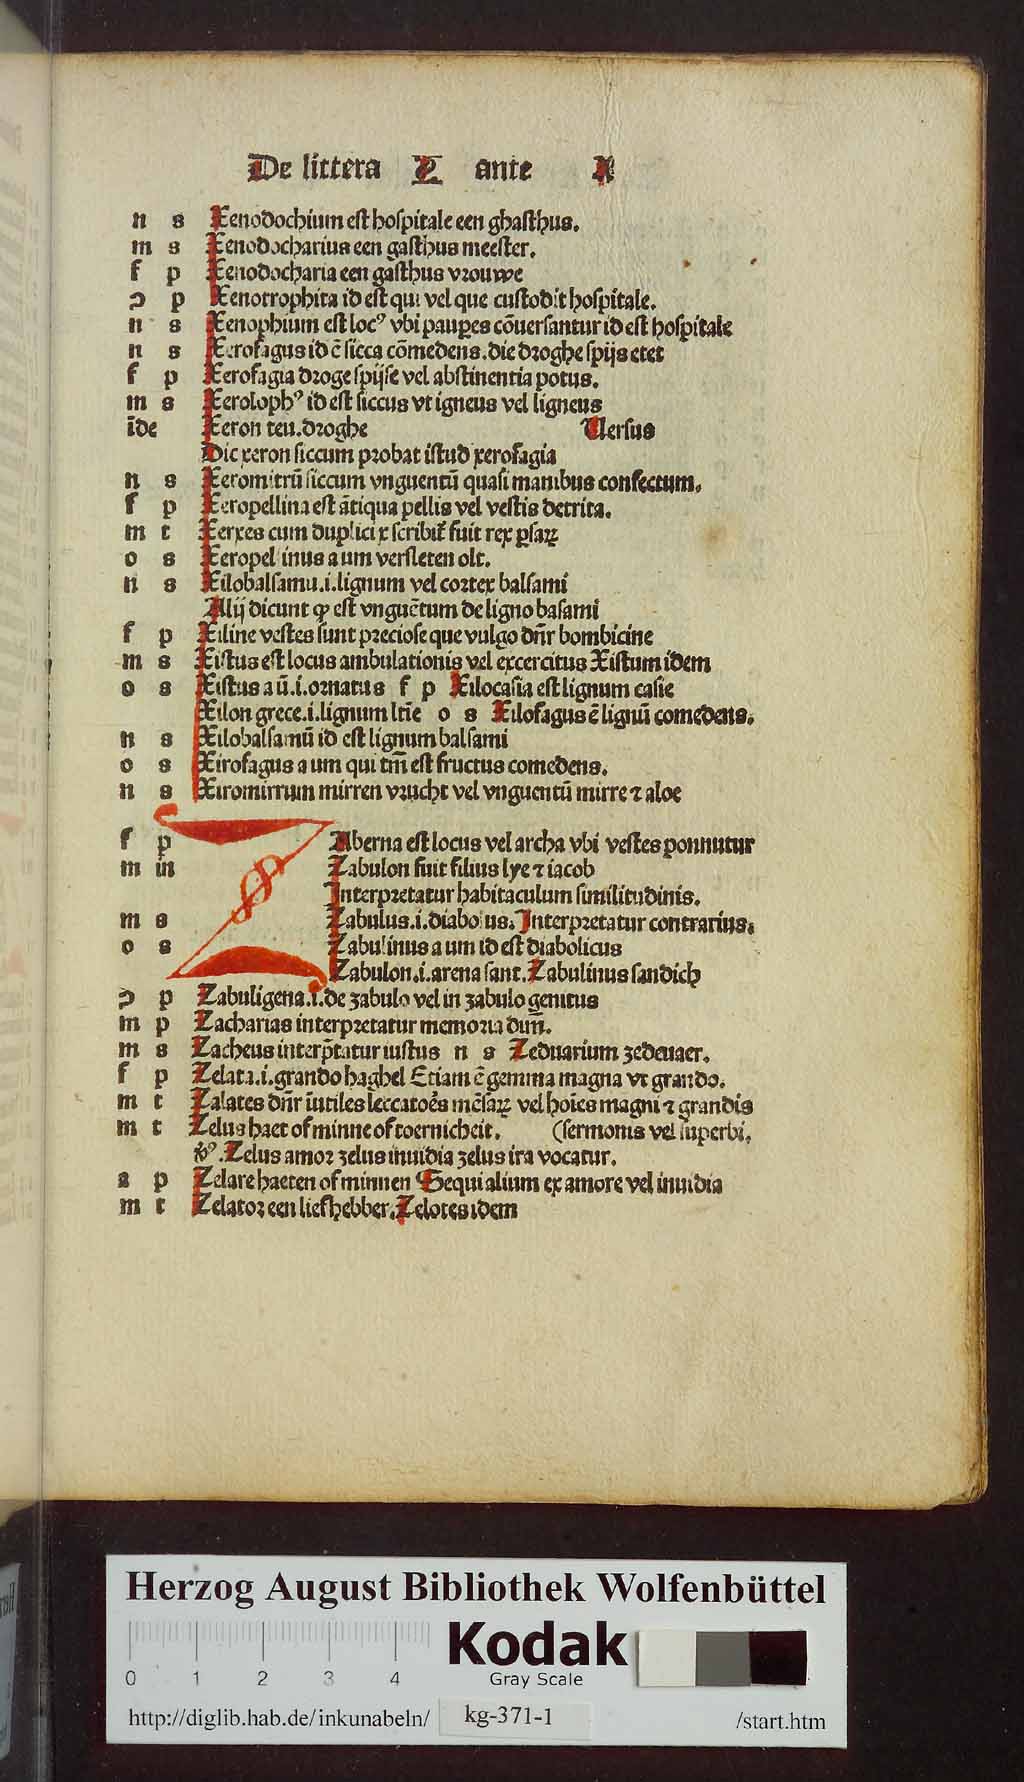 De littera X ante X
n s Xenodochium est hospitale een ghasthus.
m s Xenodocharius een gasthus meester.
f p Xenodocharia een gasthus vrouwe
ɔ p Xenotrophita id est qui vel que custodit hospitale.
n s Xenophium est locꝰ vbi pauꝑes cōuersantur id est hospitale
n s Xerofagus id ē sicca cōmedens. die droghe spijs etet
f p Xerofagia droge spijse vel abstinentia potus.
m s Xerolophꝰ id est siccus vt igneus vel ligneus
īde Xeron teu. droghe Uersus
Dic xeron siccum probat istud xerofagia
n s Xeromitrū siccum vnguentū quasi manibus confectum.
f p Xeropellina est ātiqua pellis vel vestis detrita.
m t Xerxes cum duplici x scribit̄ fuit rex ꝑsaꝝ
o s Xeropel inus a um versleten olt.
n s Xilobalsamu .i. lignum vel cortex balsami
Alij dicunt ꝙ est vnguētum de ligno basami
f p Xiline vestes sunt preciose que vulgo dn̄r bombicine
m s Xistus est locus ambulationis vel excercitus Xistum idem
o s Xistus a ū .i. ornatus f p Xilocasia est lignum casie
Xilon grece .i. lignum ltīe o s Xilofagus ē lignū comedens.
n s Xilobalsamū id est lignum balsami
o s Xirofagus a um qui tm̄ est fructus comedens.
n s Xiromirrum mirren vrucht vel vnguentū mirre ⁊ aloe
f p ZAberna est locus vel archa vbi vestes ponnutur
m in Zabulon fuit filius lye ⁊ iacob
Interpretatur habitaculum similitudinis.
m s Zabulus .i. diabolus. Interpretatur contrarius.
o s Zabulinus a um id est diabolicus
Zabulon .i. arena sant. Zabulinus sandich
ɔ p Zabuligena .i. de zabulo vel in zabulo genitus
m p Zacharias interpretatur memoria dn̄i.
m s Zacheus interp̄tatur iustus n s Zeduarium zedeuaer.
f p Zelata .i. grando haghel Etiam ē gemma magna vt grando.
m t Zalates dn̄r īutiles leccatoēs mēsaꝝ vel hoīes magni ⁊ grandis
m t Zelus haet of minne of toernicheit. (sermonis vel superbi.
v̓ꝰ. Zelus amor zelus inuidia zelus ira vocatur.
a p Zelare haeten of minnen Sequi alium ex amore vel inuidia
m t Zelator een liefhebber. Zelotes idem
Herzog August Bibliothek Wolfenbüttel
0 1 2 3 4
Kodak
Gray Scale
http://diglib.hab.de/inkunabeln/ kg-371-1 /start.htm